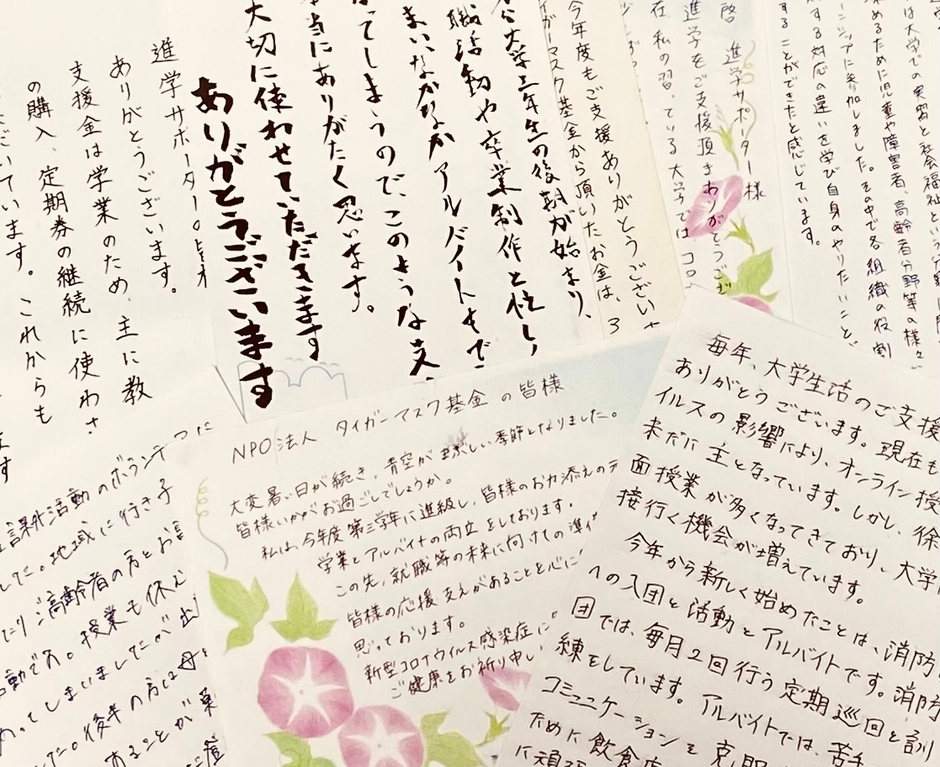 進学サポーター
ありがとうございます。
支援金は学業のため、主に教
の購入、定期券の継続に使わさ
います。これからも
大学三年生の後期が始まり、
職活動や卒業制作と忙し
まい、なかなかアルバイトもで
ってしまうので、このような支
本当にありがたく思います。
大切に使わせていただきます
ありがとうございます
今年度もご支援ありがとうござい
イガーマスク基金から頂いたお金は、3
啓 進学サポーター様
進学をご支援頂きありがとうござ
在、私の習っている大学では コロ
は大学での実習と社会福祉という分野
深めるために児童や障害者、高齢者分野等の様々
ーンシップに参加しました。その中で各組織の役割
対する対応の違いを学び自身のやりたいこと
することができたと感じています。
課外活動のボランティアに
した。地域に行き子
たりご高齢者の方とお話
動であ。授業も休ん
ってしまいましたが
た。後半の方には母
あることが
NPO法人 タイガーマスク基金の皆様
大変暑い日が続き、青空が 楽しい季節となりました。
皆様いかがお過ごしでしょうか。
私は、今年度第三学年に進級し、皆様のお力添えの
学業とアルバイトの両立をしております。
この先、就職等の未来に向けての準備
皆様の応援 支えがあることを心に
思っております。
新型コロナウイルス感染症に
ご健康をお祈り申し
毎年、大学生活のご支援
ありがとうございます。現在も
イルスの影響により、オンライン授
未だに主となっています。しかし、徐
面授業が多くなってきており、大学
接行く機会が増えています。
今年から新しく始めたことは、消防
への入団と活動とアルバイトです。消防
団では、毎月2回行う定期巡回と訓
練をしています。アルバイトでは、苦手
コミュニケーションを克服
ために飲食店
に頑張